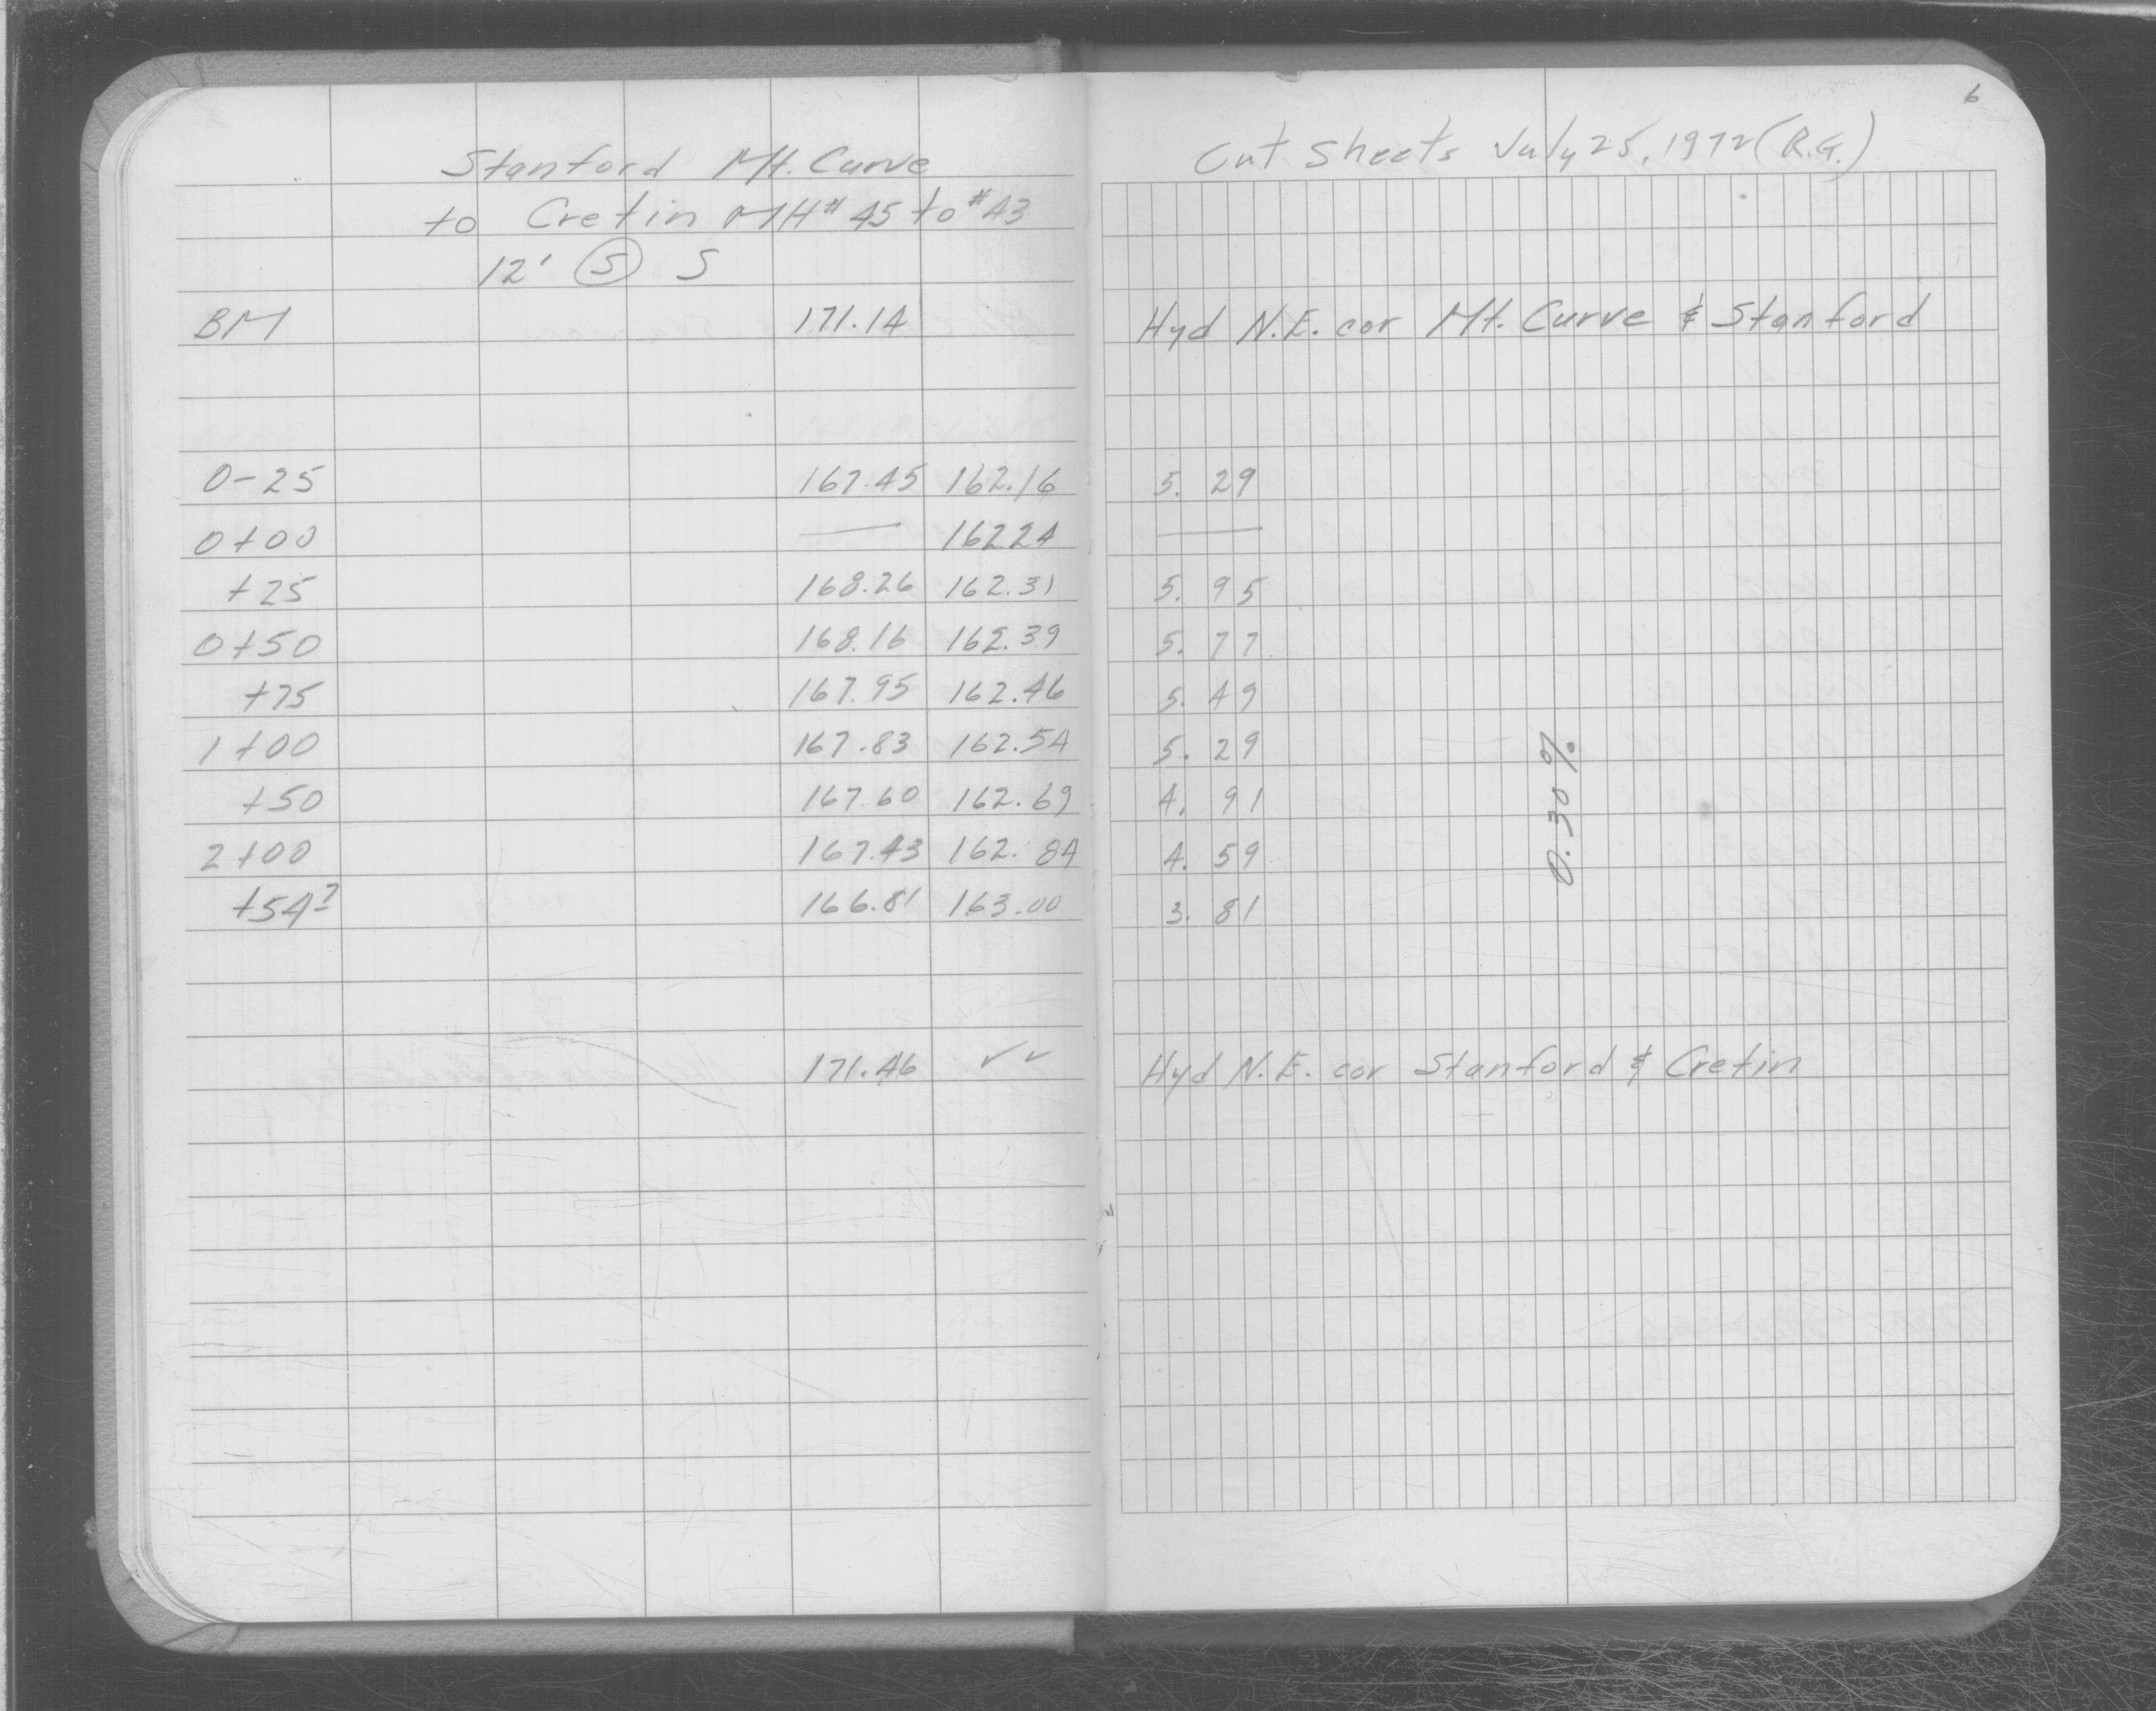 6
Stanford Mt. Curve
to Cretin MH# 45 to #43
12' Ⓢ S
Cut Sheets July 25, 1972 (R.G.)
BM 171.14 Hyd N.E. cor Mt. Curve & Stanford
0-25 167.45 162.16 5.29
0+00 — 162.24 —
+25 168.26 162.31 5.95
0+50 168.16 162.39 5.77
+75 167.95 162.46 5.49
1+00 167.83 162.54 5.29
+50 167.60 162.69 4.91
2+00 167.43 162.84 4.59
+54 166.81 163.00 3.81
0.30%
171.46 ✓✓ Hyd N.E. cor Stanford & Cretin